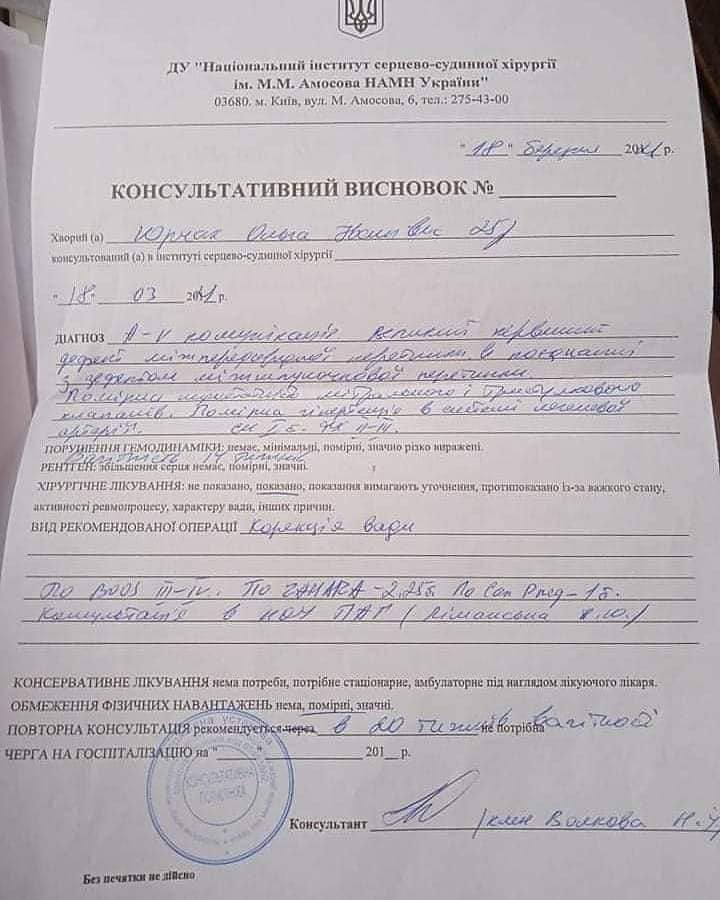 ДУ "Національний інститут серцево-судинної хірургії
ім. М.М. Амосова НАМН України"
03680. м. Київ, вул. М. Амосова, 6, тел.: 275-43-00
"18" березня 2021 р.
КОНСУЛЬТАТИВНИЙ ВИСНОВОК №
Хворий (а) Ольга 25р
консультований (а) в інституті серцево-судинної хірургії
"18" 03 2021 р.
ДІАГНОЗ А-V комунікація великий первинний
дефект міжпередсердної перетинки в поєднанні
з дефектом міжшлуночкової перетинки.
Помірна мітрального і
клапанів. Помірна гіпертензія в системі легеневої
артерії. СН І ст. ФК ІІ-ІІІ.
ПОРУШЕННЯ ГЕМОДИНАМІКИ: немає, мінімальні, помірні, значно різко виражені.
Вагітність 14 тижнів
РЕНТГЕН: збільшення серця немає, помірні, значні.
ХІРУРГІЧНЕ ЛІКУВАННЯ: не показано, показано, показання вимагають уточнення, протипоказано із-за важкого стану,
активності ревмопроцесу, характеру вади, інших причин.
ВИД РЕКОМЕНДОВАНОЇ ОПЕРАЦІЇ Корекція вади
По ВООЗ ІІІ-IV. По ZAHARA - 2,25б. По Car Preg - 1б.
в ПАГ (Лиманська
КОНСЕРВАТИВНЕ ЛІКУВАННЯ нема потреби, потрібне стаціонарне, амбулаторне під наглядом лікуючого лікаря.
ОБМЕЖЕННЯ ФІЗИЧНИХ НАВАНТАЖЕНЬ нема, помірні, значні.
ПОВТОРНА КОНСУЛЬТАЦІЯ рекомендується через в 20 тижнів вагітності не потрібна
ЧЕРГА НА ГОСПІТАЛІЗАЦІЮ на " " 201 р.
КОНСУЛЬТАТИВНА
ПОЛІКЛІНІКА
Консультант Волкова Н.
Без печатки не дійсно